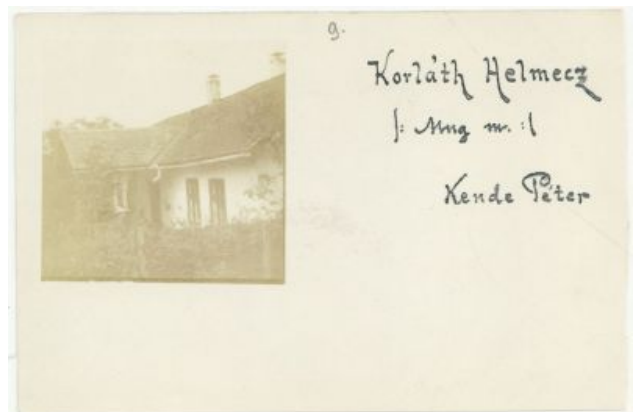 9.
Korláth Helmecz
/: Ung m. :/
Kende Péter